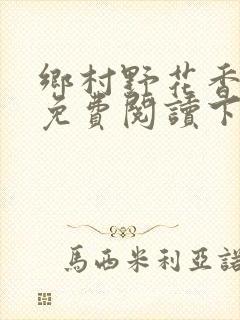 鄉村野花香
免費閱讀下
馬西米利亞諾